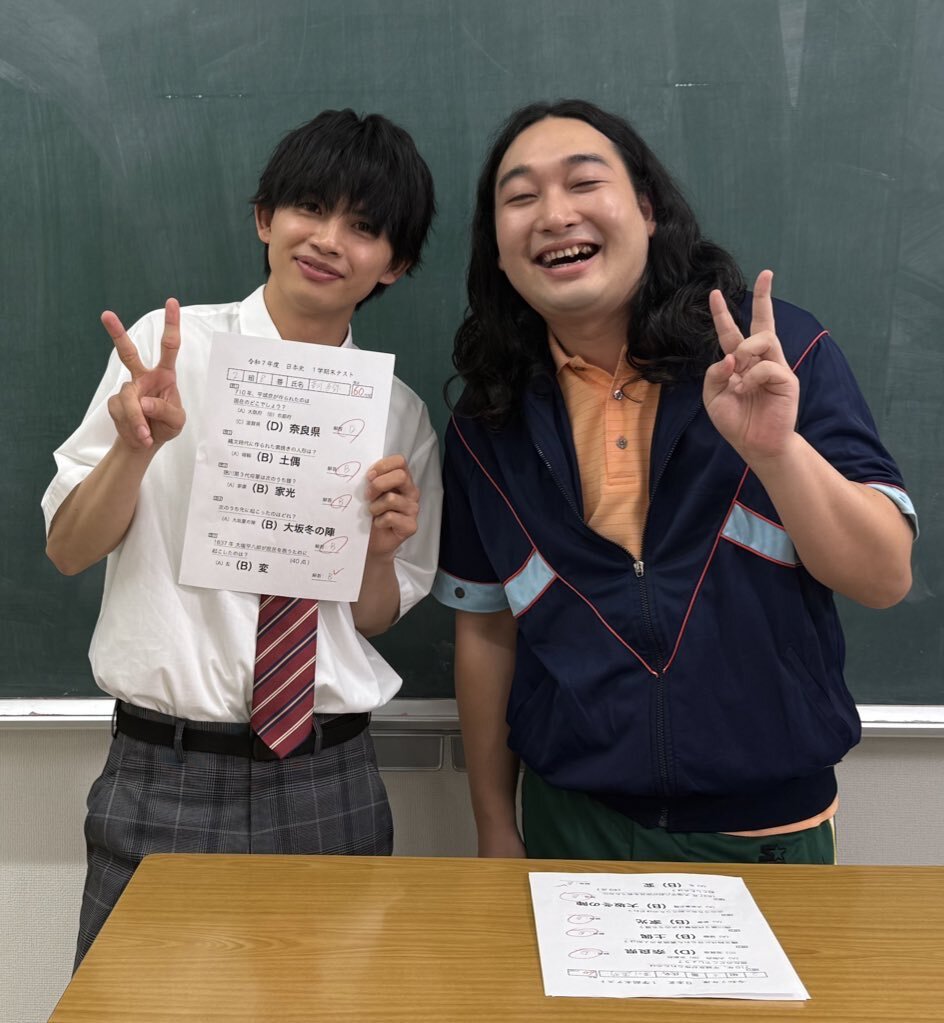 令和7年度 日本史 1学期末テスト
2 組 8 番 氏名 得点 60
710年、平城京が作られたのは
現在のどこでしょう?
(A) 大阪府 (B) 京都府
(C) 滋賀県 (D) 奈良県 解答 D
縄文時代に作られた素焼きの人形は?
(A) 埴輪 (B) 土偶 解答 B
徳川第3代将軍は次のうち誰?
(A) 家康 (B) 家光 解答 B
次のうち先に起こったのはどれ?
(A) 大坂夏の陣 (B) 大坂冬の陣
解答 B
1837年 大塩平八郎が庶民を救うために
起こしたのは? (40点)
(A) 乱 (B) 変 解答: B
令和7年度 日本史 1学期末テスト
(D) 奈良県
(B) 土偶
(B) 家光
(B) 大坂冬の陣
(B) 変